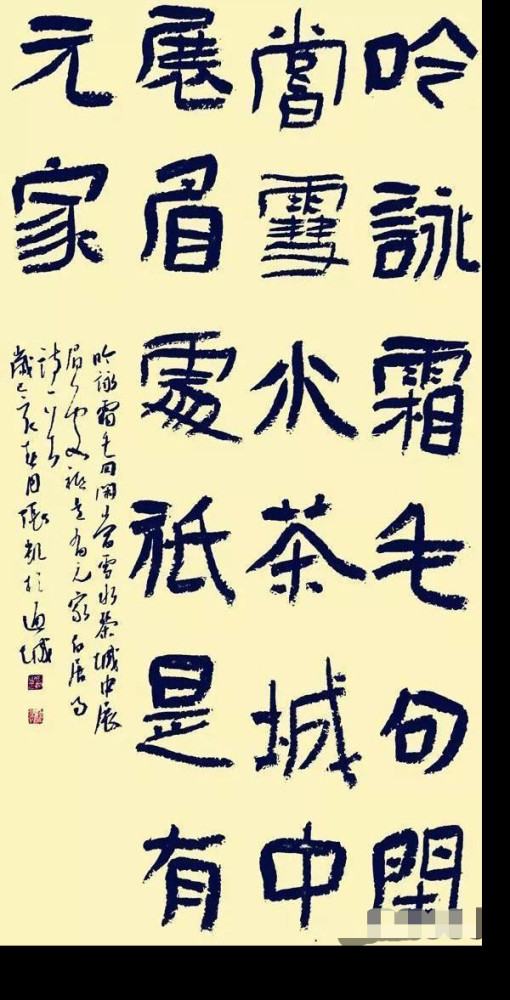 吟詠霜毛句閑
嘗雪水茶城中
展眉處祇是有
元家
吟詠霜毛句閑嘗雪水茶城中展
眉處祇是有元家白居易
詩一首
歲己亥春月張凱於